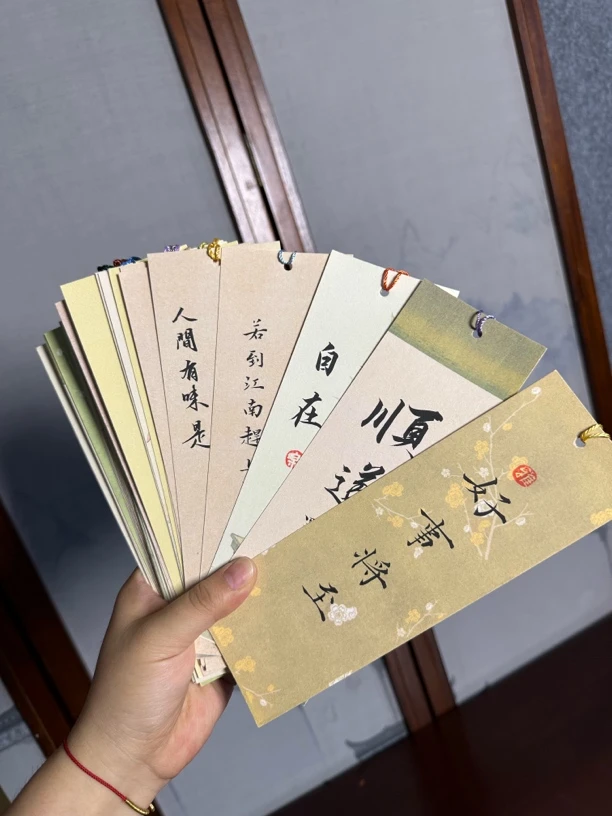 人間有味是
若到江南趕上
自在
順遂
好事將至